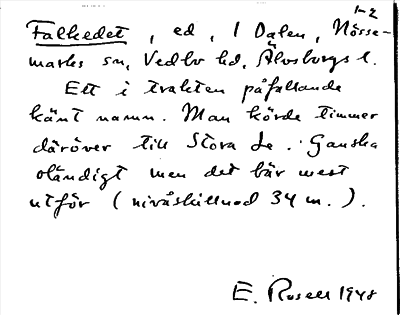 1-2
Falkedet, ed, I Dalen, Nösse-
marks sn, Vedbo hd, Älvsborgs l.
Ett i trakten påfallande
känt namn. Man körde timmer
däröver till Stora Le. Ganska
oländigt men det bär mest
utför (nivåskillnad 34 m.).
E. Rosell 1948